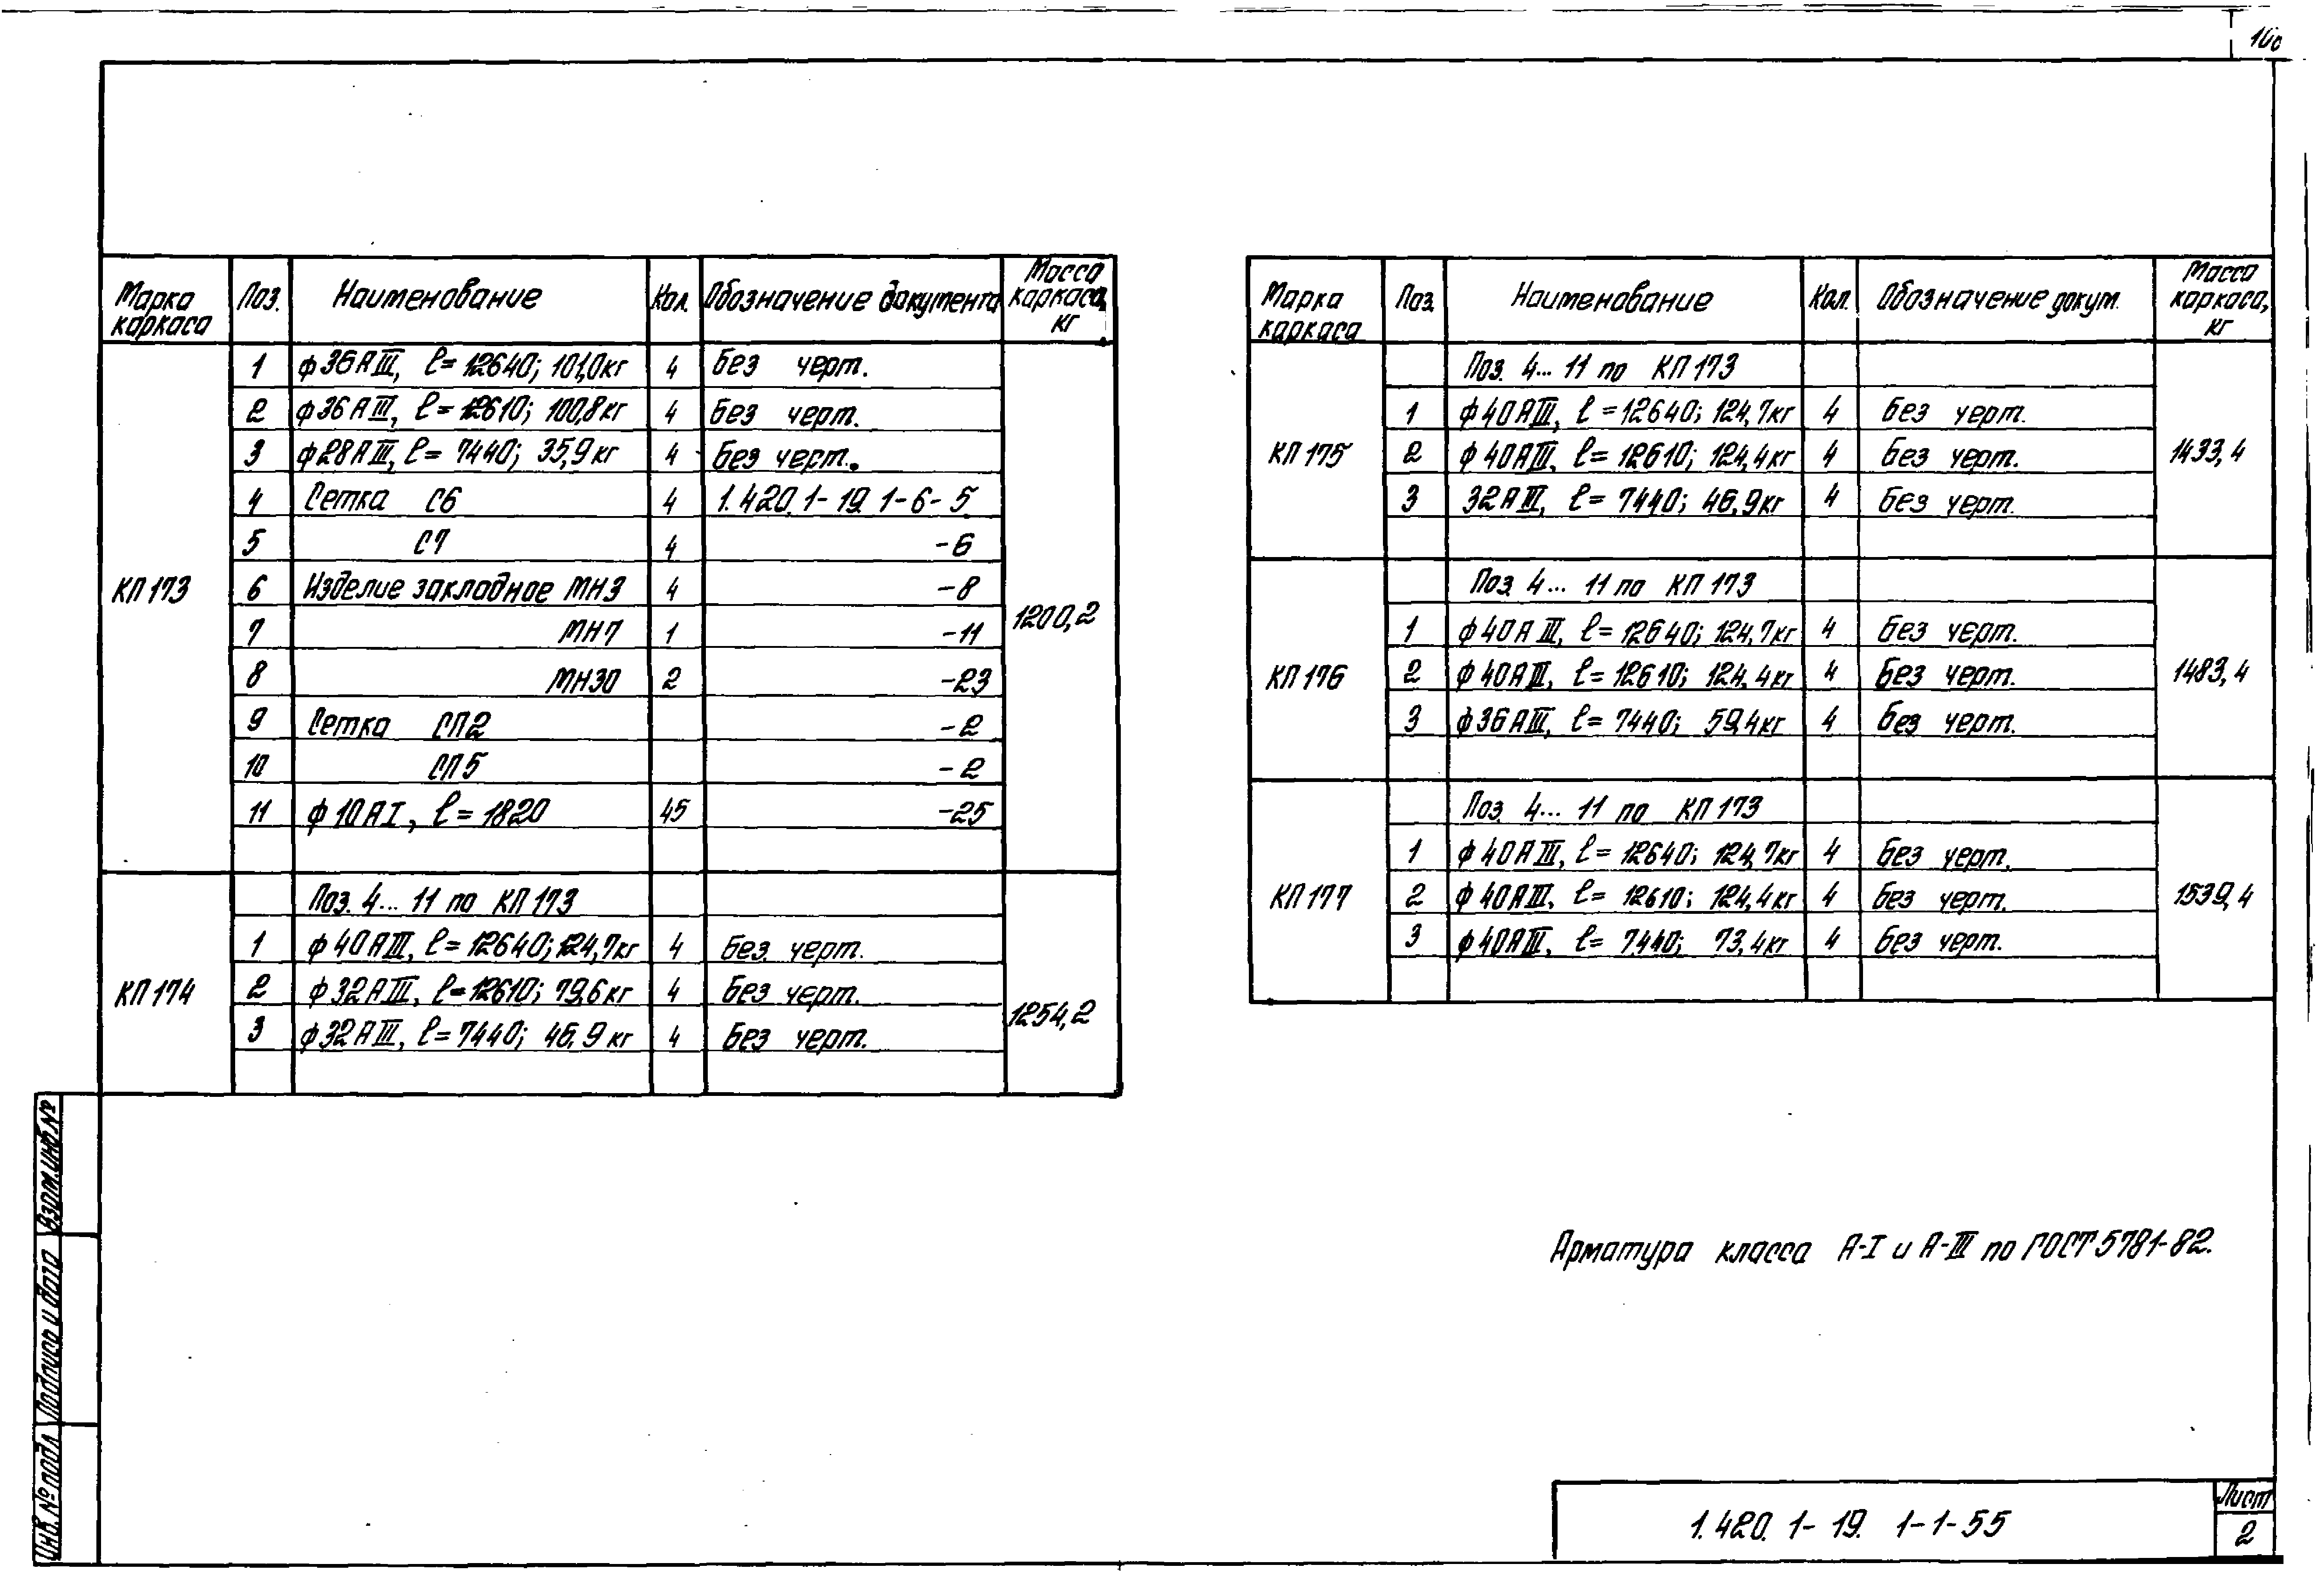 Марка каркаса | Поз. | Наименование | Кол. | Обозначение документа | Масса каркаса, кг
КП173 | 1 | ф36АIII, ℓ=12640; 101,0кг | 4 | Без черт. | 1200,2
2 | ф36АIII, ℓ=12610; 100,8кг | 4 | Без черт.
3 | ф28АIII, ℓ=7440; 35,9кг | 4 | Без черт.
4 | Сетка С6 | 4 | 1.420.1-19.1-6-5
5 | С7 | 4 | -6
6 | Изделие закладное МН3 | 4 | -8
7 | МН7 | 1 | -11
8 | МН30 | 2 | -23
9 | Сетка СП2 | -2
10 | СП5 | -2
11 | ф10АI, ℓ=1820 | 45 | -25
КП174 | Поз. 4...11 по КП173 | 1254,2
1 | ф40АIII, ℓ=12640; 124,7кг | 4 | Без черт.
2 | ф32АIII, ℓ=12610; 79,6кг | 4 | Без черт.
3 | ф32АIII, ℓ=7440; 46,9кг | 4 | Без черт.
Марка каркаса | Поз. | Наименование | Кол. | Обозначение докум. | Масса каркаса, кг
КП175 | Поз. 4...11 по КП173 | 1433,4
1 | ф40АIII, ℓ=12640; 124,7кг | 4 | Без черт.
2 | ф40АIII, ℓ=12610; 124,4кг | 4 | Без черт.
3 | 32АIII, ℓ=7440; 46,9кг | 4 | Без черт.
КП176 | Поз. 4...11 по КП173 | 1483,4
1 | ф40АIII, ℓ=12640; 124,7кг | 4 | Без черт.
2 | ф40АIII, ℓ=12610; 124,4кг | 4 | Без черт.
3 | ф36АIII, ℓ=7440; 59,4кг | 4 | Без черт.
КП177 | Поз. 4...11 по КП173 | 1539,4
1 | ф40АIII, ℓ=12640; 124,7кг | 4 | Без черт.
2 | ф40АIII, ℓ=12610; 124,4кг | 4 | Без черт.
3 | ф40АIII, ℓ=7440; 73,4кг | 4 | Без черт.
Арматура класса А-I и А-III по ГОСТ 5781-82.
Взам.инв.№
Подпись и дата
Инв.№ подл
1.420.1-19. 1-1-55
Лист
2